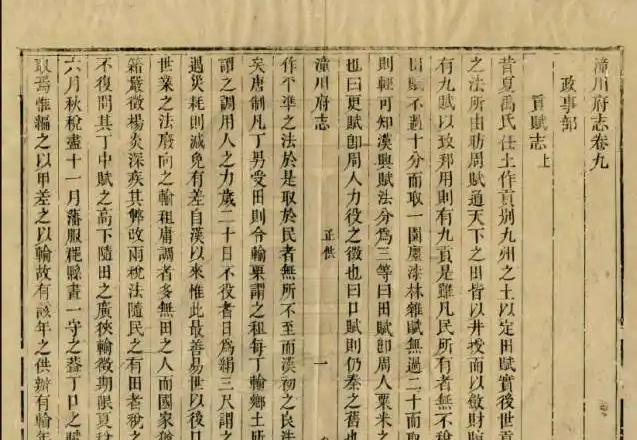 潼川府志卷九
政事部
貢賦志上
昔夏禹氏任土作貢别九州之土以定田賦實後世貢
之法所由昉周賦通天下之田皆以井授而以斂財
有九賦以致邦用則有九貢是雖凡民所有者無不稅
田賦不過十分而取一園廛漆林雜賦無過二十而取
則輕可知漢興賦法分爲三等曰田賦卽周人粟米之
也曰更賦卽周人力役之徵也曰口賦則仍秦之舊也
潼川府志 正供 一
作平準之法於是取於民者無所不至而漢初之良法
矣唐制凡丁男受田則令輸粟謂之租每丁輸鄉土所
謂之調用人之力歲二十日不役者日爲絹三尺謂之
遇災耗則減免有差自漢以來惟此最善易世以後口
世業之法廢向之輸租庸調者多無田之人而國家猶
籍嚴徵楊炎深疾其弊改兩稅法隨民之有田者稅之
不復問其丁中賦之高下隨田之廣狹輸徵期限夏稅
六月秋稅盡十一月藩服縣畫一守之蓋丁口之賦
取焉惟編之以甲差之以輸故有該年之供辦有輸年